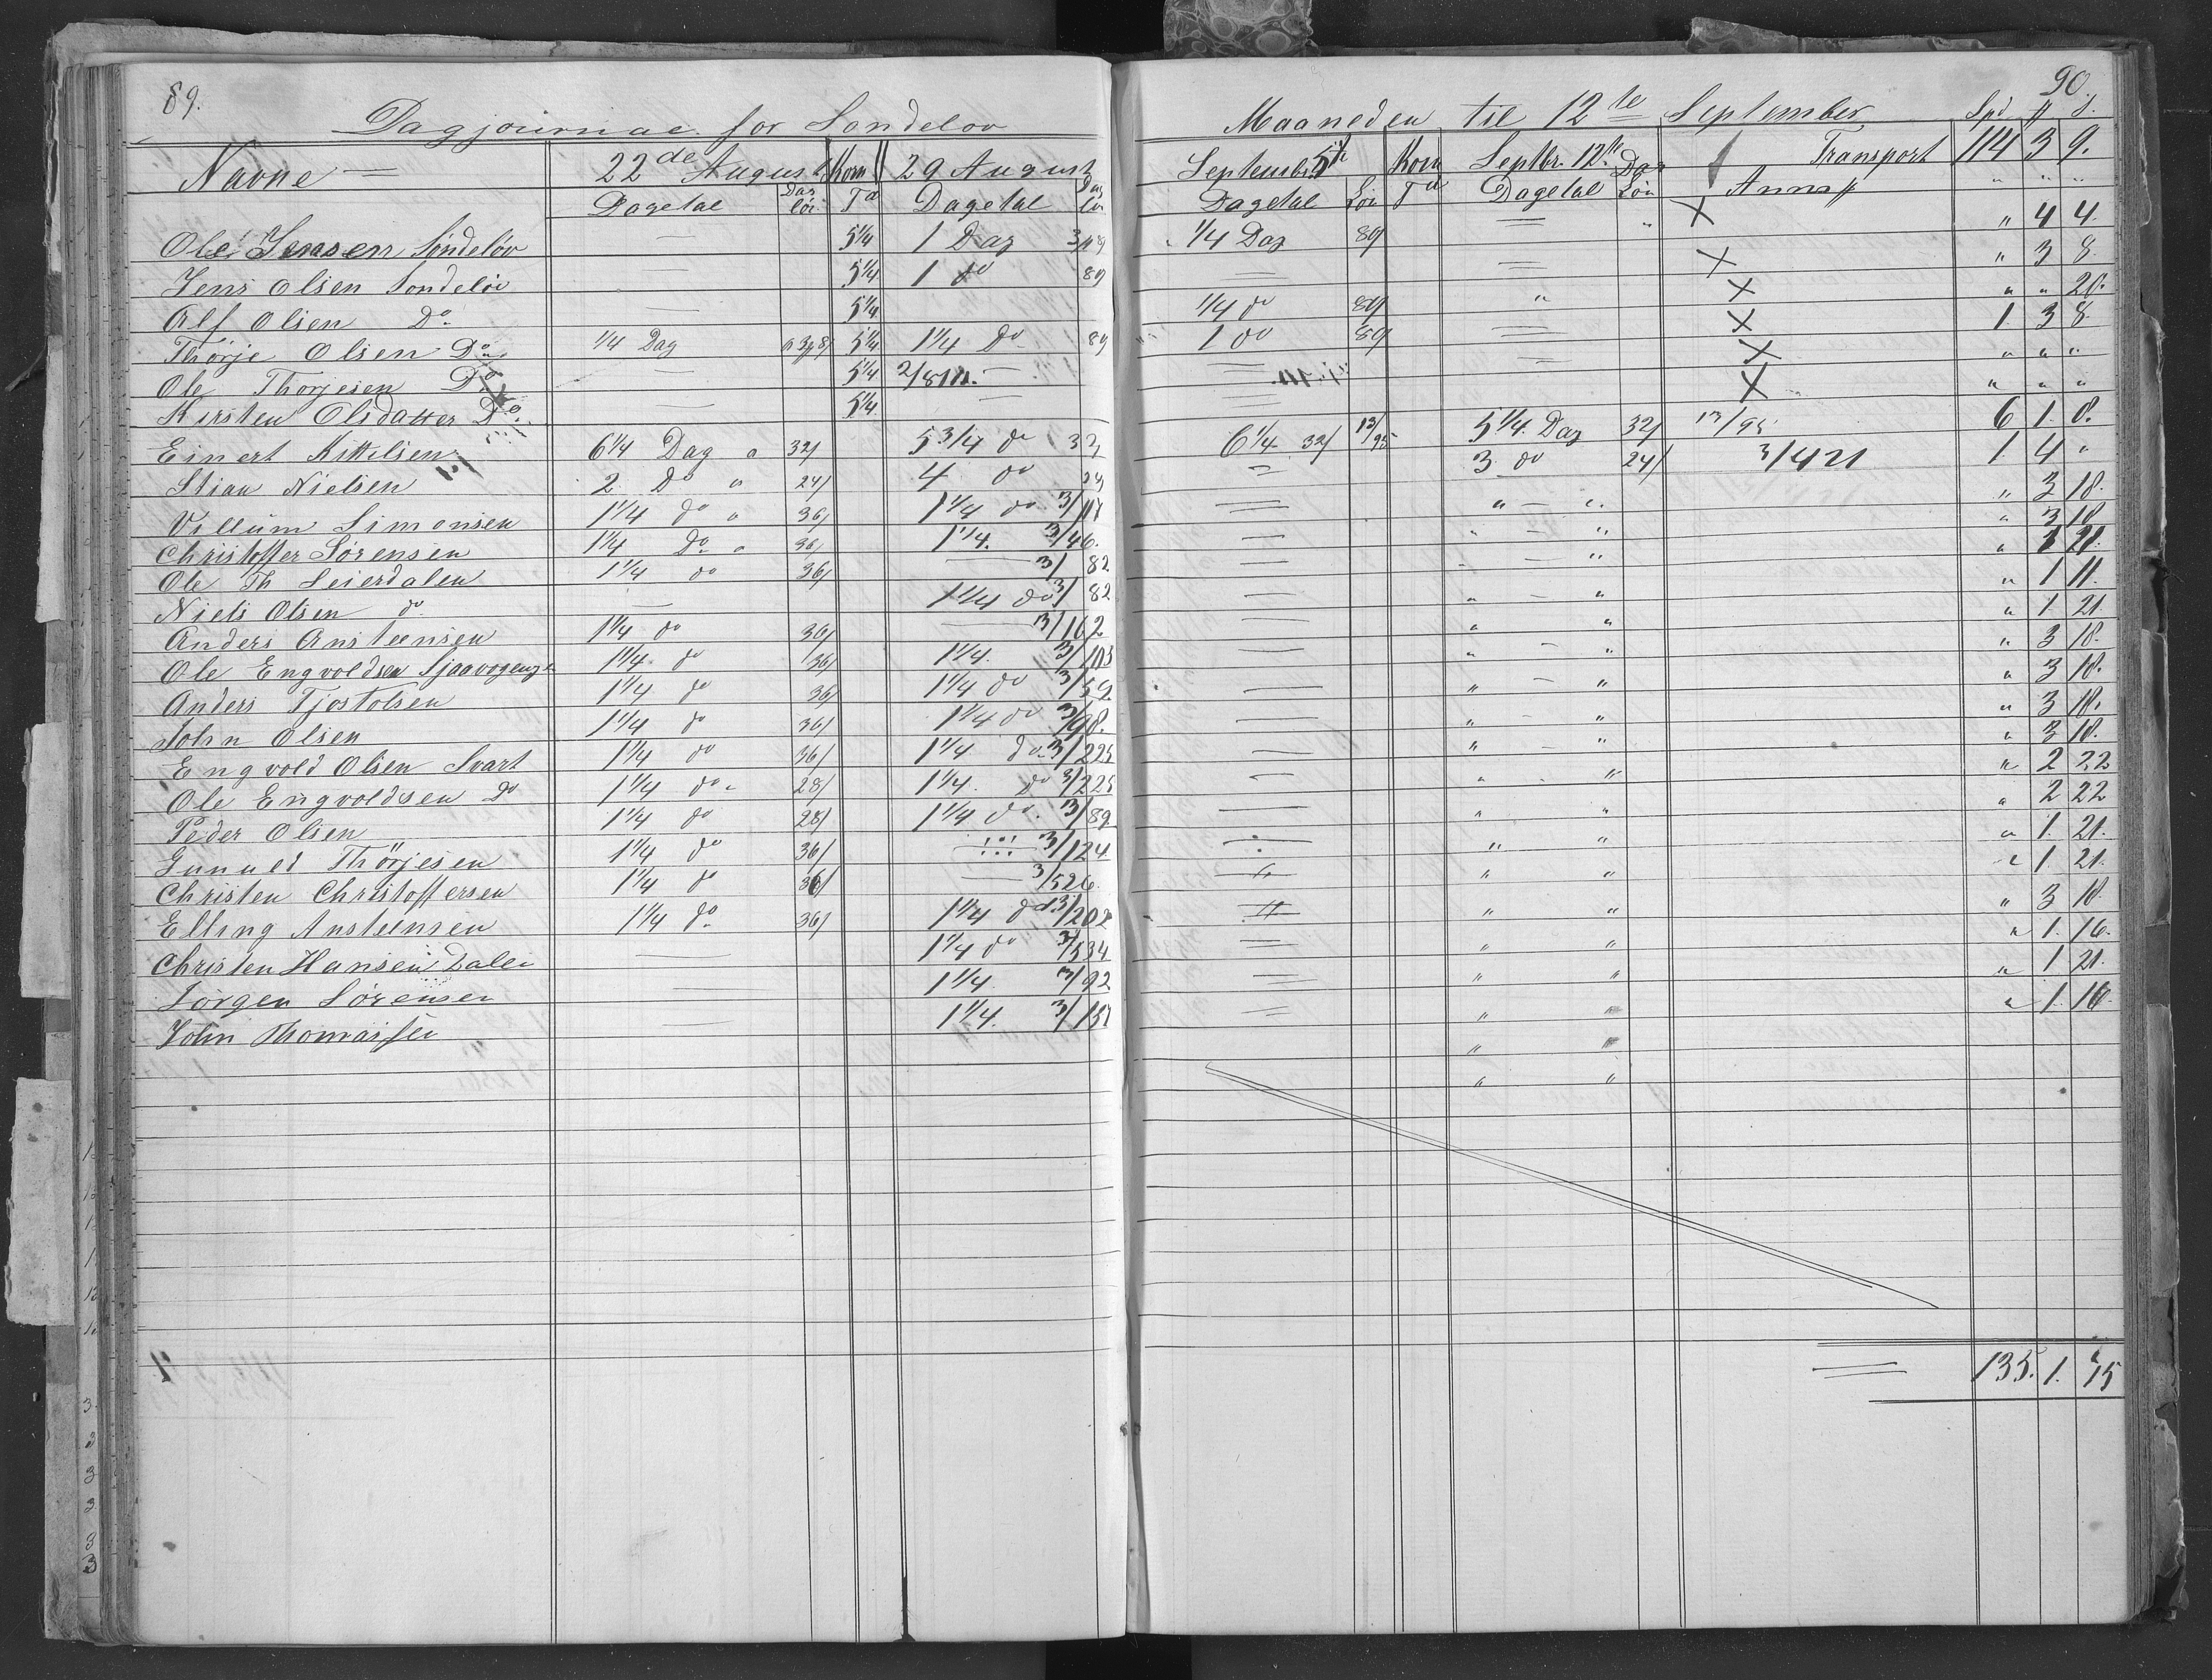 89.
Dagjournal for Sondeløv
Navne
22de August
Korn
29 August
Dagetal
Dag løn
Td
Dagetal
Dag løn
Ole Jensen Søndeløv — 5 1/4 1 Dag
Jens Olsen Sondeløv — 5 1/4 1 do 89
Alf Olsen Do — 5 1/4
Thørje Olsen Do 1/4 Dag 5 1/4 1 1/4 Do 89
Ole Thorjesen Do — 5 1/4 —
Kirsten Olsdatter Do — 5 1/4 —
Einert Kittilsen 6 1/4 Dag a 32/ 5 3/4 do 32/
Stian Nielsen 2 Do " 24/ 4 do
Villum Simonsen 1 1/4 do " 36/ 1 1/4 do 3/117
Christoffer Sørensen 1 1/4 Do " 36/ 1 1/4. 3/46.
Ole Th Leierdalen 1 1/4 do 36/ — 3/82
Niels Olsen do — 1 1/4 do 3/82
Anders Ansteensen 1 1/4 do 36/ — 3/162
Ole Engvoldsen 1 1/4 do 36/ 1 1/4. 3/103
Anders Tjostolsen 1 1/4 do 36/ 1 1/4 do 3/59
John Olsen 1 1/4 do 36/ 1 1/4 do 3/98.
Engvold Olsen Svart 1 1/4 do 36/ 1 1/4 do 3/225
Ole Engvoldsen Do 1 1/4 do " 28/ 1 1/4. do 3/225
Peder Olsen 1 1/4 do 28/ 1 1/4 do. 3/89
Gunuld Thörjesen 1 1/4 do 36/ — 3/124
Christen Christoffersen 1 1/4 do 36/ — 3/526.
Elling Ansteensen 1 1/4 do 36/ 1 1/4 do 3/202
Christen Hansen Dalen — 1 1/4 do 3/534
Jørgen Sørensen — 1 1/4. 3/92
John Thomassen — 1 1/4. 3/137
90.
Maaneden til 12te September
Spd # s.
September 5te
Korn
Septbr. 12te
Dag
Transport 114 3 9.
Dagetal
Løn
Td
Dagetal
Løn
" " "
1/4 Dag 89 — X " 4 4.
— — X " 3 8.
1/4 do 89 " X " " 20.
1 do 89 — X 1. 3 8
— — X " " "
— X " " "
6 1/4 32/ 13/95 5 1/4 Dag 32/ 13/95 6 1. 8.
— 3 do 24/ 3/421 1. 4 "
— " — " " 3 18.
— " - " " 3 18
— - - " "
— " " " 1 11.
— " " " 1. 21
— " - " " 3 18.
— " - " " 3 18.
— " - " " 3 18.
— " - " " 3 18.
— " - " " 2 22
— " " " 2 22
— " " " 1. 21.
— " " " 1. 21.
— " " " 3 18.
— " " " 1. 16.
— " " " 1 21.
— " " " 1. 16.
" "
" "
135. 1. 15